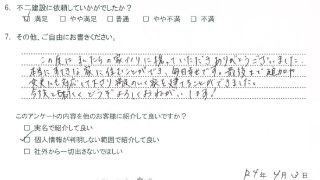 6. 不二建設に依頼していかがでしたか？
☑ 満足 □ やや満足 □ 普通 □ やや不満 □ 不満
7. その他、ご自由にお書きください。
この度は私たちの家づくりに携っていただきありがとうございました。
本当にすてきな家に住むことができ、毎日幸せです。最後まで
変更にも対応して下さり 満足のいく家を建てることができました。
今後とも どうぞよろしくおねがいします！
このアンケートの内容を他のお客様に紹介して良いですか？
□ 実名で紹介して良い
☑ 個人情報が判明しない範囲で紹介して良い
□ 社外から一切出さないでほしい
R4年4月3日